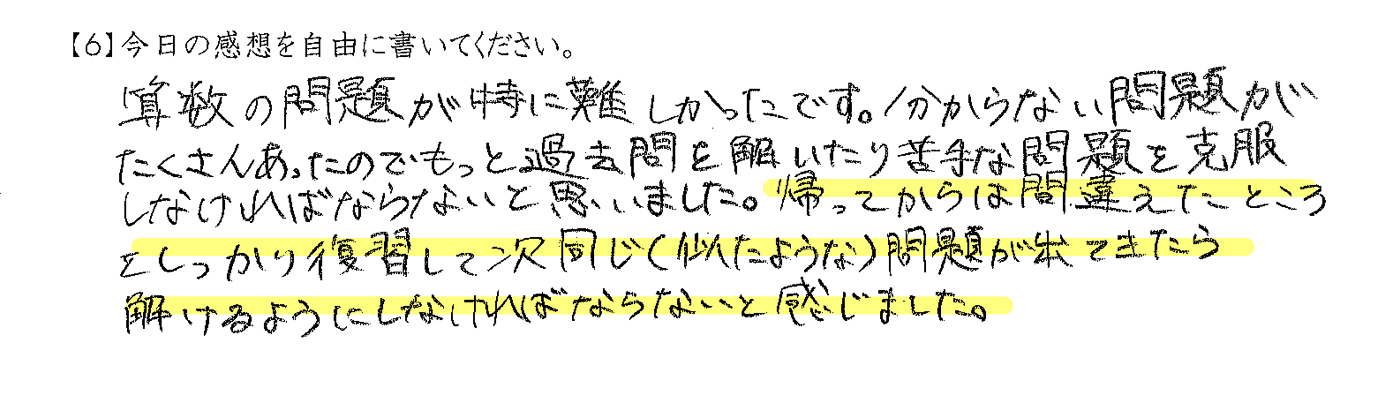 【6】今日の感想を自由に書いてください。
算数の問題が特に難しかったです。分からない問題が
たくさんあったのでもっと過去問を解いたり苦手な問題を克服
しなければならないと思いました。帰ってからは間違えたところ
をしっかり復習して次同じ(似たような)問題が出てきたら
解けるようにしなければならないと感じました。